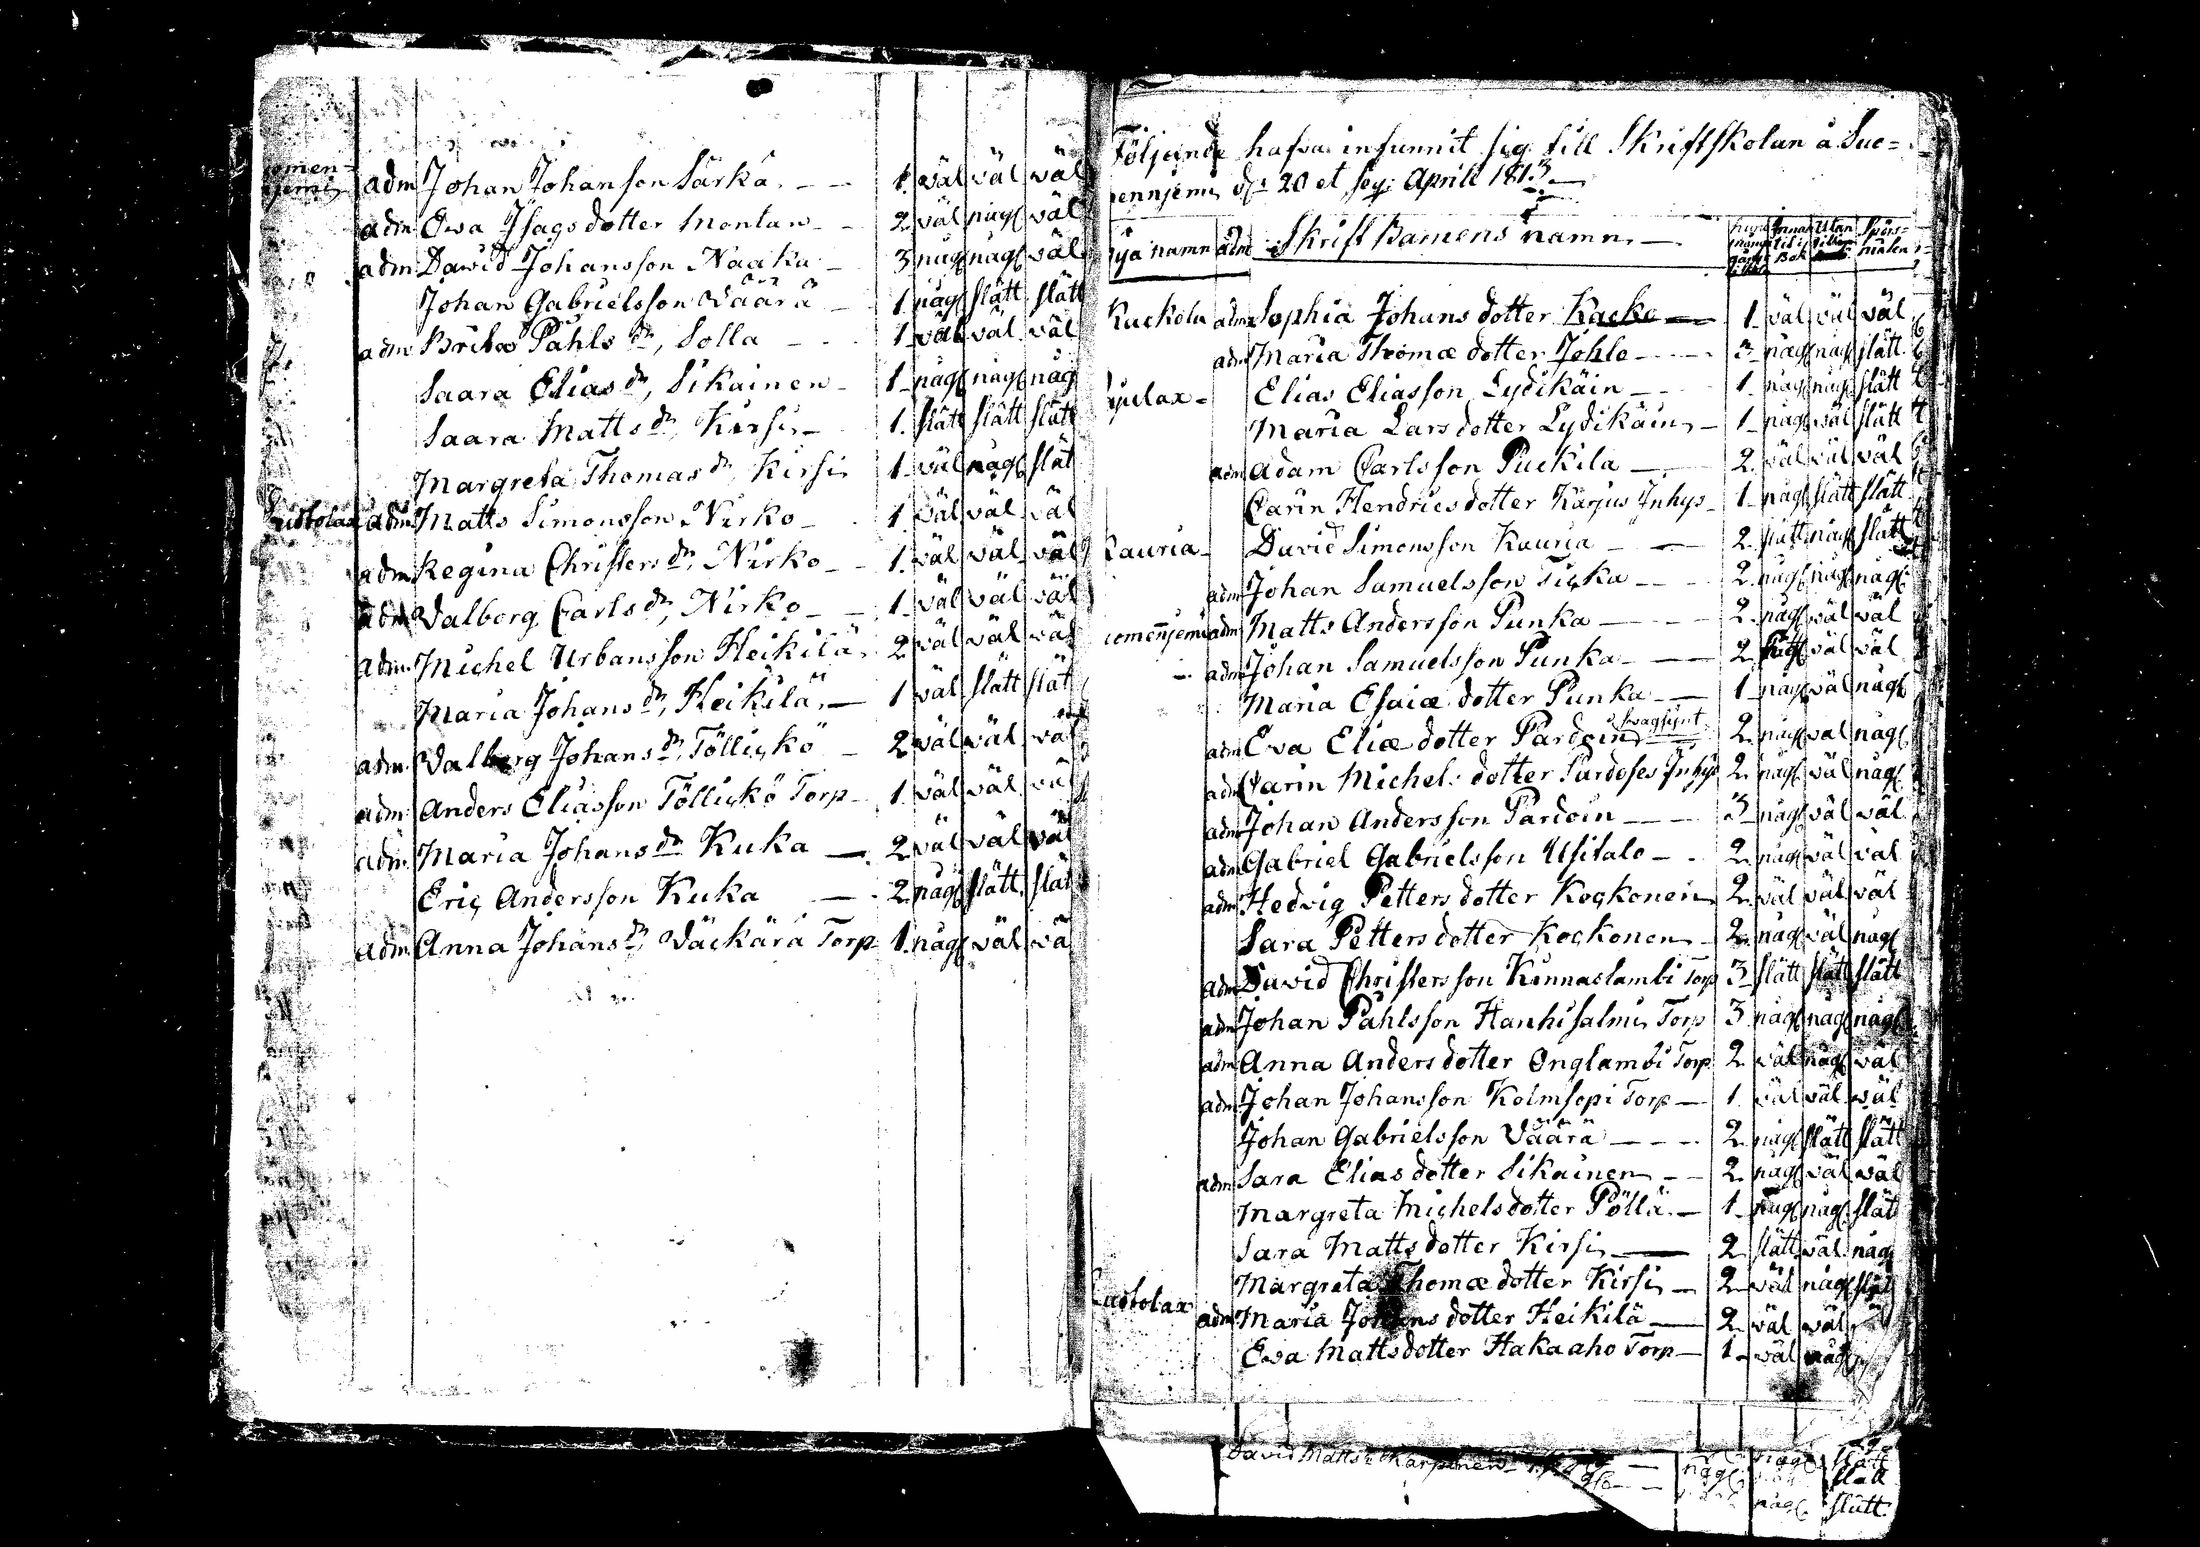 adm Johan Johansson Särkä. 1. väl väl väl
adm Ewa Isags dotter Montan 2. väl någl väl
adm David Johansson Naaka 3 någl någl väl
Johan Gabrielsson Väärä 1 någl slätt slätt
adm Brita Påhls dr, Solla 1 väl väl väl
Saara Elias dr, Sikainen 1 någl någl någ
Saara Matts dr, Kirsi 1. slätt slätt slätt
Margreta Thomas dr, Kirsi 1 väl någl slät
adm Matts Simonsson Nirko 1 väl väl väl
adm Regina Christers dr, Nirko 1. väl väl väl
adm Valborg Carls dr, Nirko 1 väl väl väl
adm Michel Urbansson Heikilä 2 väl väl väl
Maria Johans dr, Heikilä 1 väl slätt slät
adm Valborg Johans dr, Töllickö 2 väl väl väl
adm Anders Eliasson Töllickö Torp 1 väl väl väl
adm Maria Johans dr Kuka 2 väl väl väl
Eric Andersson Kuka 2 någl slätt slät
adm Anna Johans dr, Väckärä Torp 1. någl väl vä
Följande hafva infunnit sig till Skriftskolan å Suo=
mennjemi d. 20 et seq: Aprill 1813
Bya namn adm Skrift Barnens namn huru många gånger Innantil i Bok Utan Spörs=målen
Kuckola adm Sophia Johans dotter Kacko 1 väl väl väl
adm Maria Thomæ dotter Johlo 3 någl någl slätt
Elias Eliasson Lydikäin 1 någl någl slätt
Maria Lars dotter Lydikäin 1 någl väl slätt
adm Adam Carlsson Puckila 2. väl väl väl
Carin Hendrics dotter Karjus Inhys 1 någl slätt slätt
Kauria David Simonsson Kauria 2 slätt någl slätt
adm Johan Samuelsson Ticka 2. någl någl någl
adm Matts Andersson Punka 2 någl väl väl
adm Johan Samuelsson Punka 2 någl väl väl
Maria Esaiæ dotter Punka 1 någl väl någl
adm Eva Eliæ dotter Pardoin svagsynt 2 någl väl någl
adm Carin Michels dotter Pardoses Inhys 2 någl väl någl
adm Johan Andersson Pardoin 3 någl väl väl
adm Gabriel Gabrielsson Usitalo 2 någl väl väl
adm Hedvig Petters dotter Kockonen 2 väl väl väl
Sara Petters dotter Kockonen 2 någl väl någl
adm David Christersson Kinnaslambi Torp 3 slätt slätt slätt
adm Johan Påhlsson Hanhisalmi Torp 3 någl någl någl
adm Anna Anders dotter Onglambi Torp 2 väl någl väl
adm Johan Johansson Kolmsopi Torp 1 väl väl väl
Johan Gabrielsson Väärä 2 någl slätt slätt
adm Sara Elias dotter Sikainen 2 någl väl väl
Margreta Michels dotter Pöllä 1 någl någl slät
Sara Matts dotter Kirsi 2 slätt väl någ
Margreta Thomæ dotter Kirsi 2 väl någl slät
adm Maria Johans dotter Heikilä 2 väl väl
Ewa Matts dotter Hakaaho Torp 1 väl någl
David Matts: Karpinen någl någl slätt
slätt
någl slätt